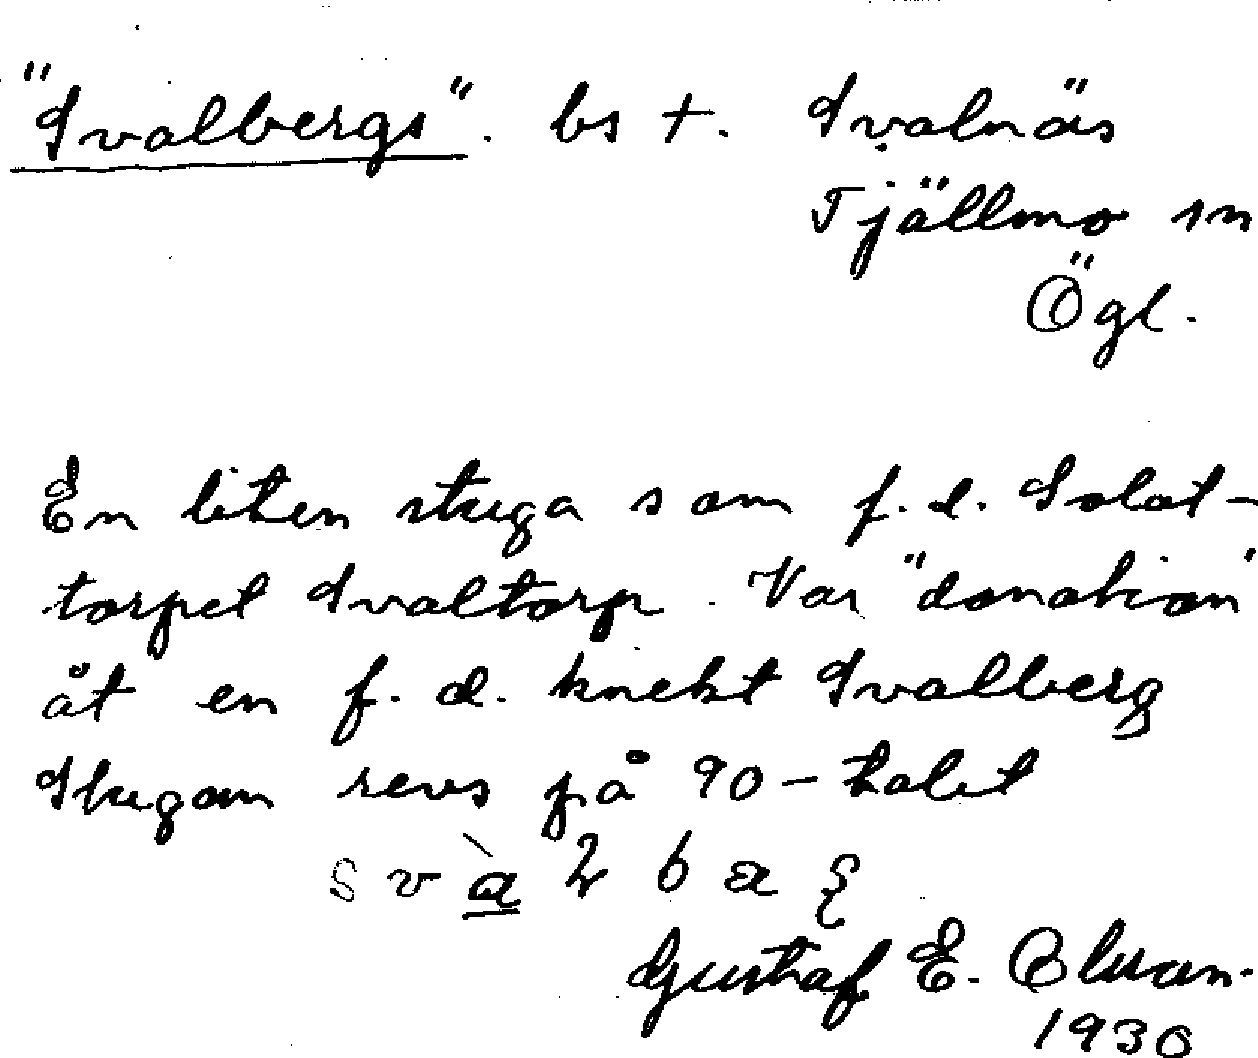 "Svalbergs". bs +. Svalnäs
Tjällmo sn
Ögl.
En liten stuga som f.d. Soldat-
torpet Svaltorp. Var "donation"
åt en f.d. knekt Svalberg
Stugan revs på 90-talet
Gustaf E.
1930